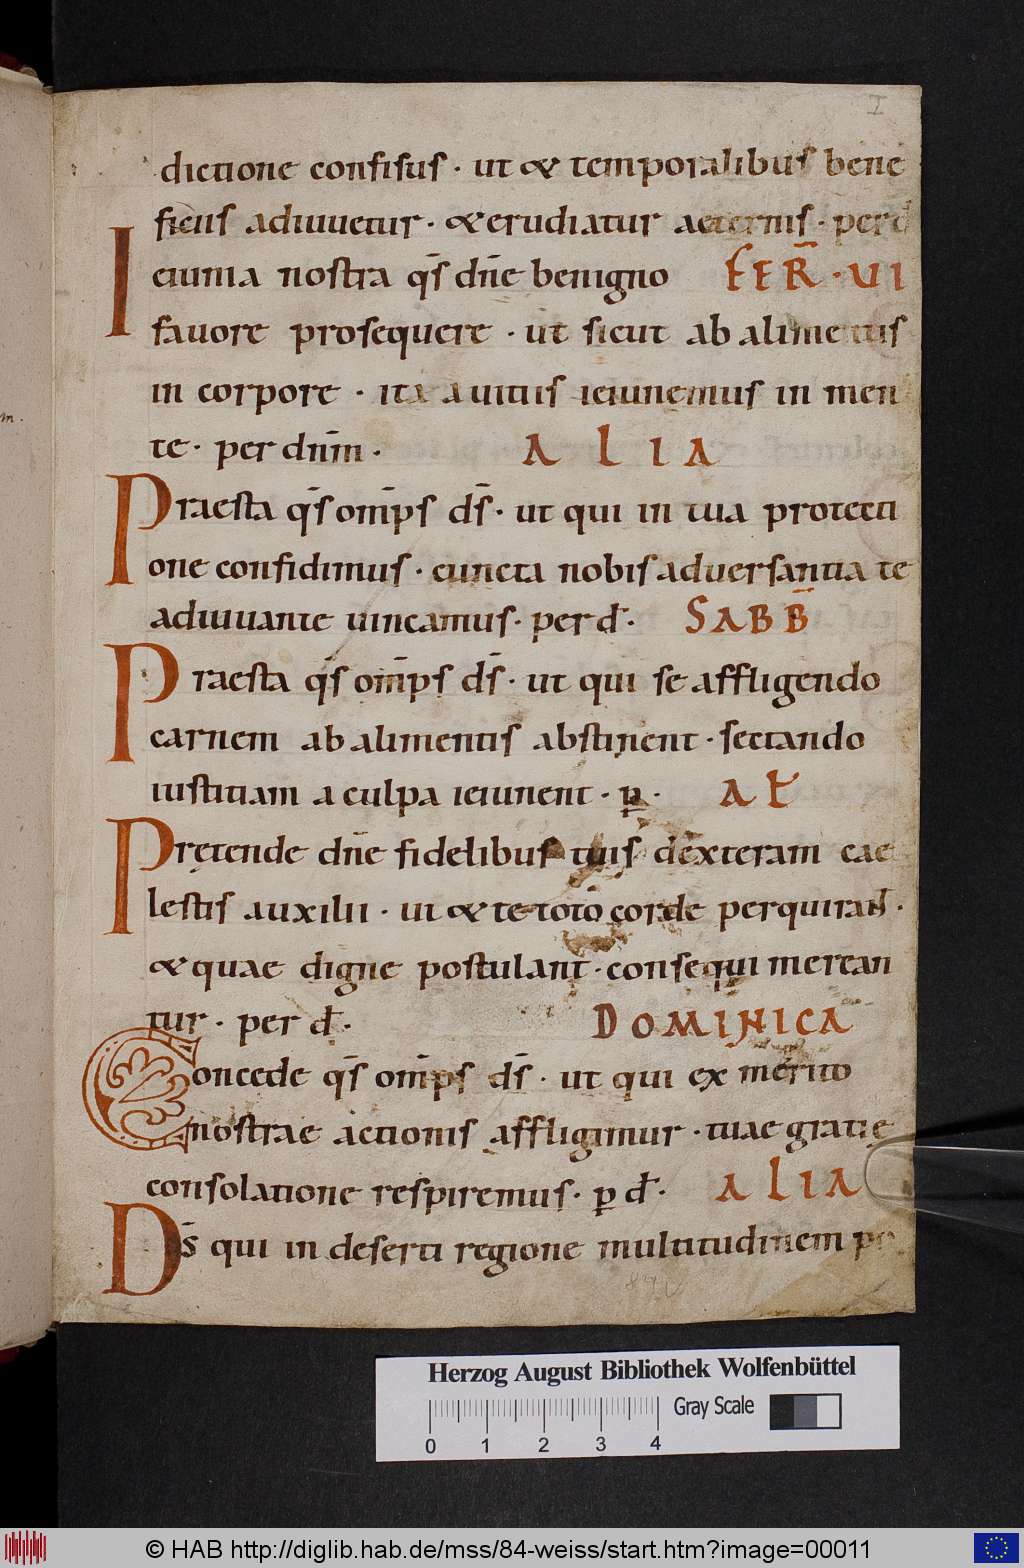 I
dictione confisus · ut & temporalibus bene
ficiis adiuuetur · & erudiatur aeternis · per d
Ieiunia nostra q̄s dn̄e benigno FER̄ · VI
fauore prosequere · ut sicut ab alimentis
in corpore · ita a uitiis ieiunemus in men
te · per dn̄m · ALIA
Praesta q̄s om̄ps ds̄ · ut qui in tua protecti
one confidimus · cuncta nobis aduersantia te
adiuuante uincamus · per đ · SABB̄
Praesta q̄s om̄ps ds̄ · ut qui se affligendo
carnem ab alimentis abstinent · sectando
iustitiam a culpa ieiunent · p̱ · AŁ
Prętende dn̄e fidelibus tuis dexteram cae
lestis auxilii · ut & te toto corde perquirant ·
& quae digne postulant · consequi merean
tur · per đ · DOMINICA
Concede q̄s om̄ps ds̄ · ut qui ex merito
nostrae actionis affligimur · tuae gratię
consolatione respiremus · p̱ đ · ALIA
Ds̄ qui in deserti regione multitudinem po
m.
Herzog August Bibliothek Wolfenbüttel
Gray Scale
0 1 2 3 4
© HAB http://diglib.hab.de/mss/84-weiss/start.htm?image=00011